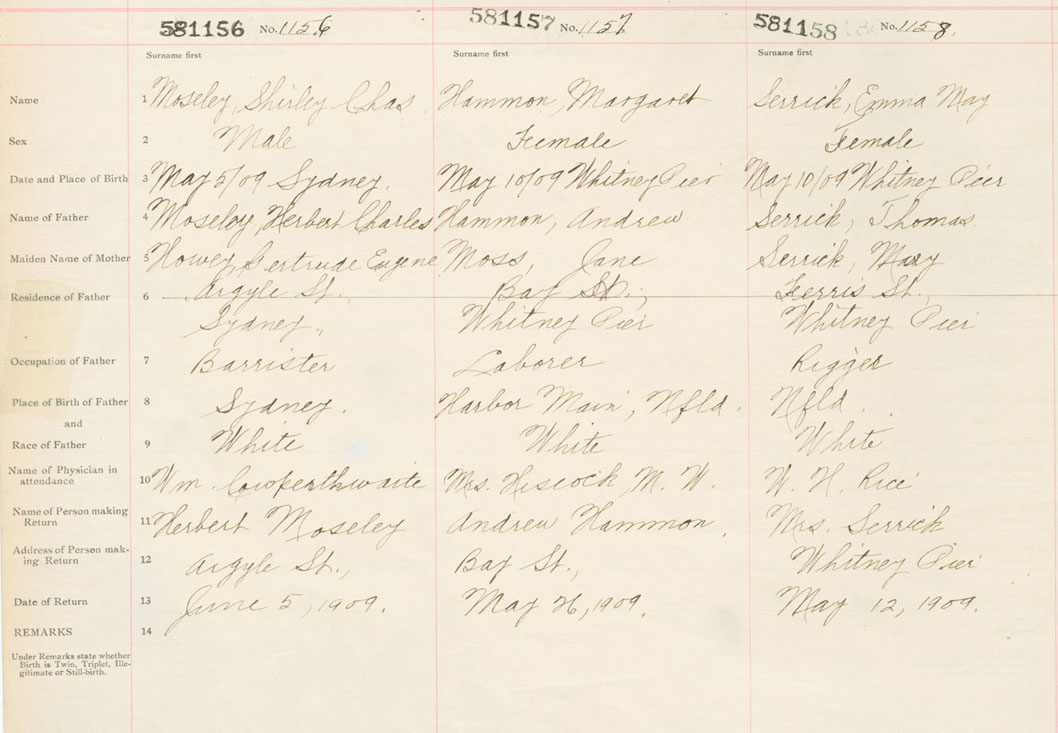 581156 No. 1156 581157 No. 1157 581158 No. 1158.
Surname first Surname first Surname first
Name 1 Moseley, Shirley Chas. Hammon, Margaret Serrick, Emma May
Sex 2 Male Female Female
Date and Place of Birth 3 May 5/09 Sydney. May 10/09 Whitney Pier May 10/09 Whitney Pier
Name of Father 4 Moseley, Herbert Charles Hammon, Andrew Serrick, Thomas.
Maiden Name of Mother 5 Howey, Gertrude Eugene Moss, Jane Serrick, Mary
Residence of Father 6 Argyle St., Bay St., Ferris St.,
Sydney, Whitney Pier Whitney Pier
Occupation of Father 7 Barrister Laborer Rigger
Place of Birth of Father 8 Sydney. Harbor Main, Nfld. Nfld.
and
Race of Father 9 White White White
Name of Physician in
attendance 10 Wm. Cowperthwaite Mrs. Hiscock, M. W. W. H. Rice
Name of Person making
Return 11 Herbert Moseley Andrew Hammon, Mrs. Serrick
Address of Person mak-
ing Return 12 Argyle St., Bay St., Whitney Pier
Date of Return 13 June 5, 1909. May 26, 1909. May 12, 1909.
REMARKS 14
Under Remarks state whether
Birth is Twin, Triplet, Ille-
gitimate or Still-birth.